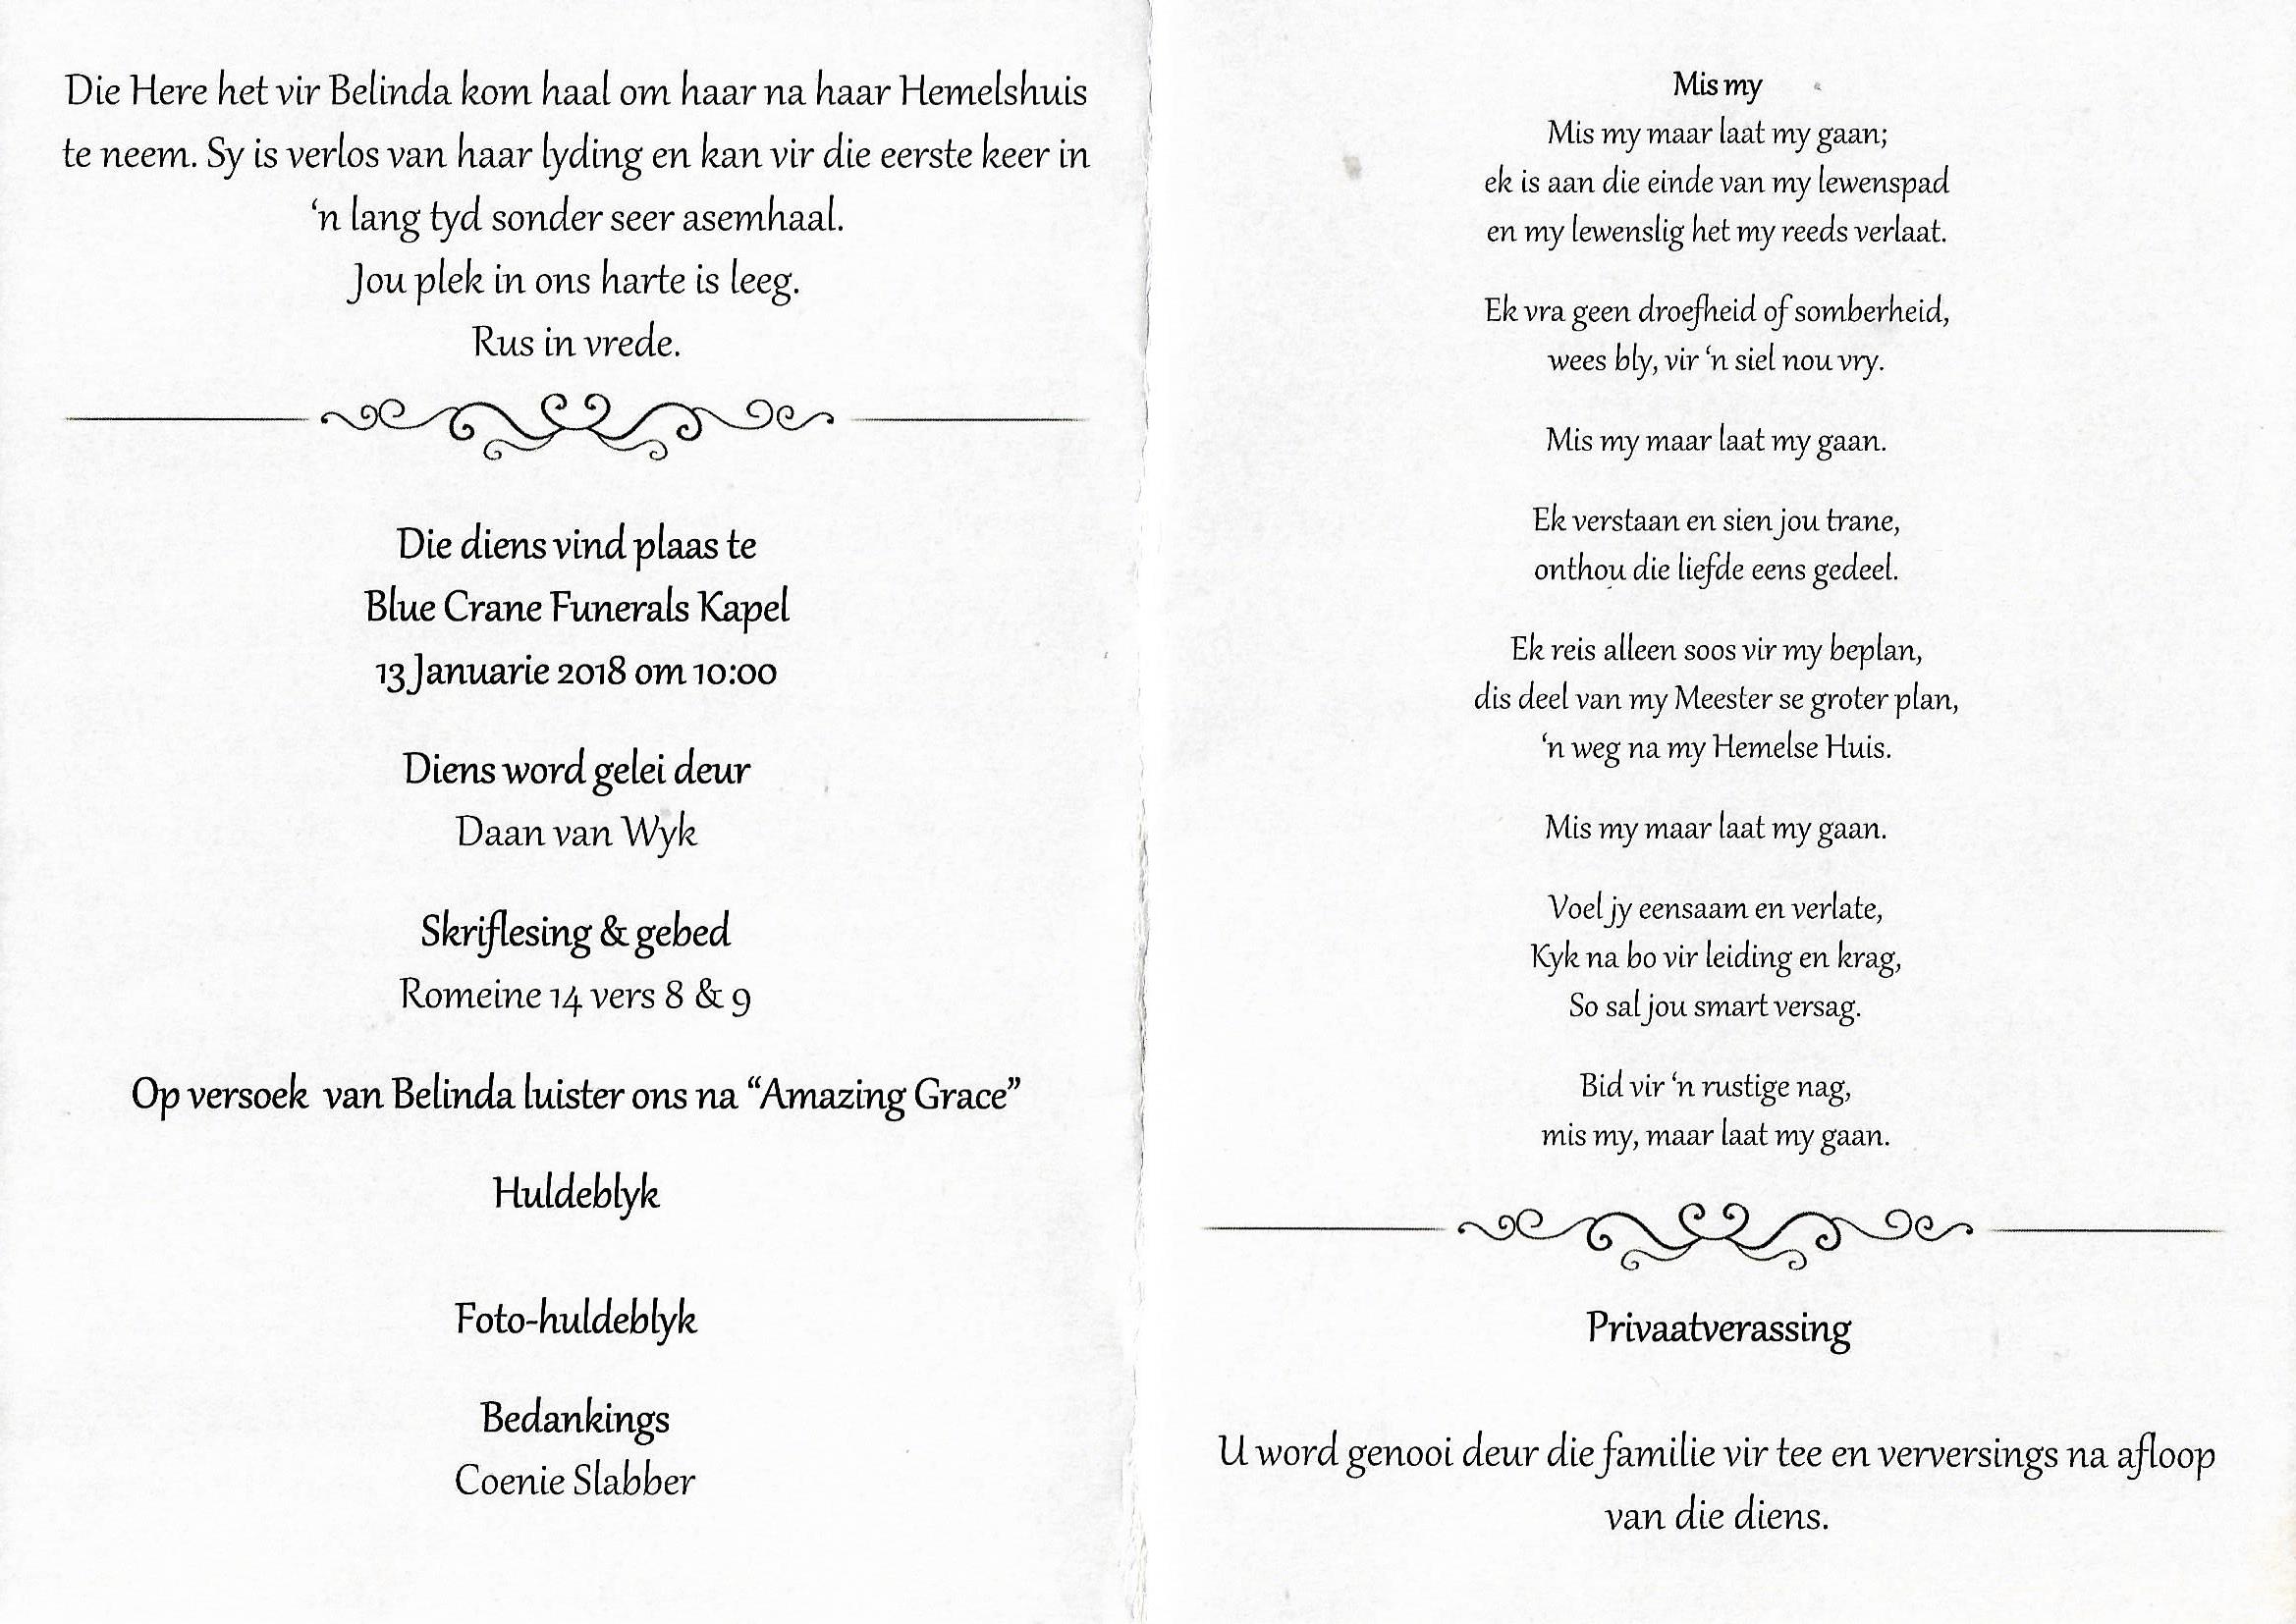 Die Here het vir Belinda kom haal om haar na haar Hemelshuis
te neem. Sy is verlos van haar lyding en kan vir die eerste keer in
‘n lang tyd sonder seer asemhaal.
Jou plek in ons harte is leeg.
Rus in vrede.
Die diens vind plaas te
Blue Crane Funerals Kapel
13 Januarie 2018 om 10:00
Diens word gelei deur
Daan van Wyk
Skriflesing & gebed
Romeine 14 vers 8 & 9
Op versoek van Belinda luister ons na “Amazing Grace”
Huldeblyk
Foto-huldeblyk
Bedankings
Coenie Slabber
Mis my
Mis my maar laat my gaan;
ek is aan die einde van my lewenspad
en my lewenslig het my reeds verlaat.
Ek vra geen droefheid of somberheid,
wees bly, vir ‘n siel nou vry.
Mis my maar laat my gaan.
Ek verstaan en sien jou trane,
onthou die liefde eens gedeel.
Ek reis alleen soos vir my beplan,
dis deel van my Meester se groter plan,
‘n weg na my Hemelse Huis.
Mis my maar laat my gaan.
Voel jy eensaam en verlate,
Kyk na bo vir leiding en krag,
So sal jou smart versag.
Bid vir ‘n rustige nag,
mis my, maar laat my gaan.
Privaatverassing
U word genooi deur die familie vir tee en verversings na afloop
van die diens.